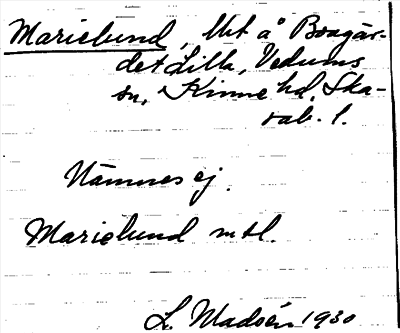 Marielund, Uht å Bragår-
det Lilla, Vedums
sn, Kinne hd, Ska-
rab. l.
Nämnes ej.
Marielund mtl.
L. Madsén 1930